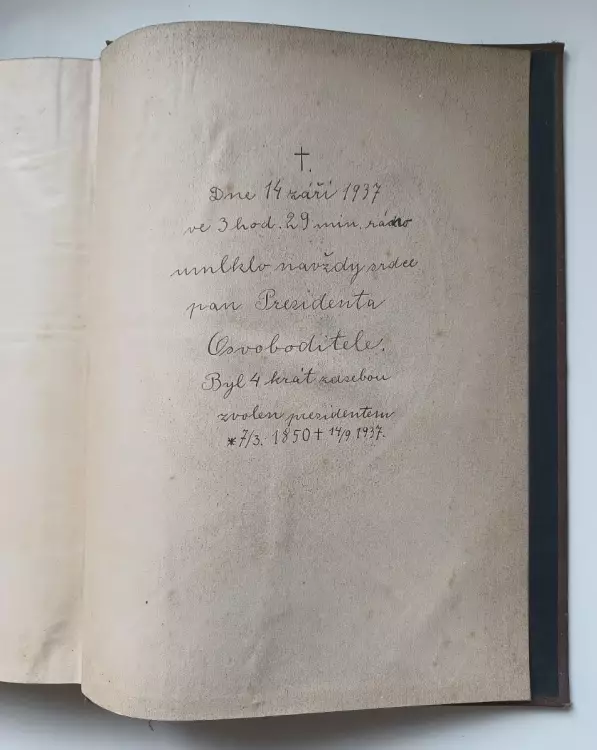 †.
Dne 14 září 1937
ve 3 hod. 29 min. ráno
umlklo navždy srdce
pan Prezidenta
Osvoboditele.
Byl 4 krát zdsebou
zvolen prezidentem
* 7/3. 1850 † 14/9 1937.